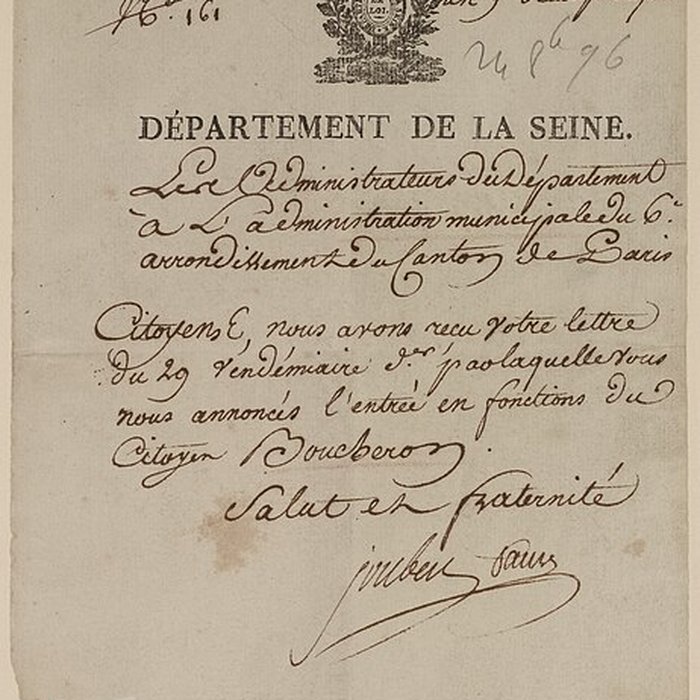 N.º 161
LA LOI.
24 8bre 96
DÉPARTEMENT DE LA SEINE.
Les Administrateurs du Département
à L'administration municipale du 6.e
arrondissement du Canton de Paris
Citoyens, nous avons recu votre lettre
du 29 vendémiaire d.er par laquelle vous
nous annoncés l'entrée en fonctions du
Citoyen Boucheron.
Salut et fraternité
joubert